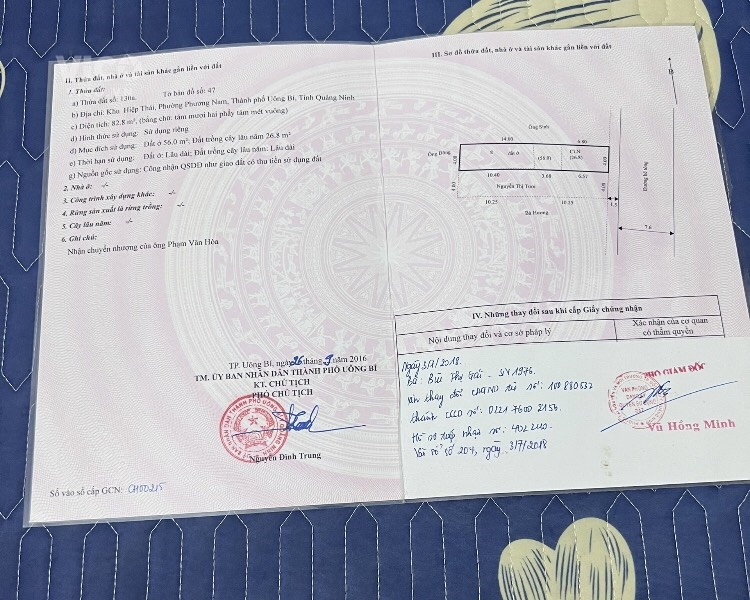 II. Thửa đất, nhà ở và tài sản khác gắn liền với đất
1. Thửa đất:
a) Thửa đất số: 130a Tờ bản đồ số: 47
b) Địa chỉ: Khu Hiệp Thái, Phường Phương Nam, Thành phố Uông Bí, Tỉnh Quảng Ninh
c) Diện tích: 82.8 m², (bằng chữ: tám mươi hai phẩy tám mét vuông)
d) Hình thức sử dụng: Sử dụng riêng
đ) Mục đích sử dụng: Đất ở 56.0 m²; Đất trồng cây lâu năm 26.8 m²
e) Thời hạn sử dụng: Đất ở: Lâu dài; Đất trồng cây lâu năm: Lâu dài
g) Nguồn gốc sử dụng: Công nhận QSDĐ như giao đất có thu tiền sử dụng đất
2. Nhà ở: -/-
3. Công trình xây dựng khác: -/-
4. Rừng sản xuất là rừng trồng: -/-
5. Cây lâu năm: -/-
6. Ghi chú:
Nhận chuyển nhượng của ông Phạm Văn Hòa
TP. Uông Bí, ngày 26 tháng 9 năm 2016
TM. ỦY BAN NHÂN DÂN THÀNH PHỐ UÔNG BÍ
KT. CHỦ TỊCH
PHÓ CHỦ TỊCH
Nguyễn Đình Trung
Số vào sổ cấp GCN: CH00215
III. Sơ đồ thửa đất, nhà ở và tài sản khác gắn liền với đất
B
Ông Ninh
14.00 6.80
Ông Đông 4.00 đất ở (56.0) CLN (26.8) 4.00
10.40 3.60 6.57
4.00 Nguyễn Thị Tươi 4.00
10.25 10.25
Bà Hương
Đường bê tông
1.5
7.6
IV. Những thay đổi sau khi cấp Giấy chứng nhận
Nội dung thay đổi và cơ sở pháp lý
Xác nhận của cơ quan có thẩm quyền
Ngày 3/7/2018.
Bà: Bùi Thị Gái - SN 1976.
thay đổi CMND từ số: 100880632
thành CCCD số: 0221 7600 2156.
Hồ sơ tiếp nhận số: 402240
Vào sổ số 204, ngày 3/7/2018
PHÓ GIÁM ĐỐC
VĂN PHÒNG
Vũ Hồng Minh